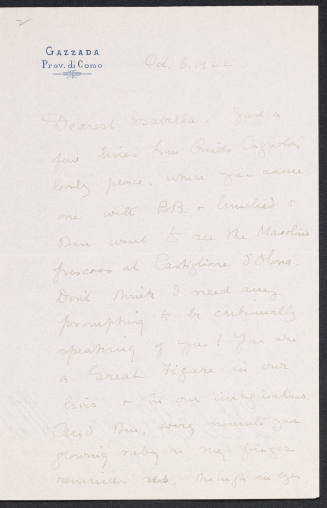 2
GAZZADA
Prov. di Como
Oct. 8. 1922
Dearest Isabella, Just a
few lines from Guido Cagnola's
lovely place, where you came
once with BB & lunched &
then went to see the Masolino
frescoes at Castiglione d'Olona.
Don't think I need any
prompting to be continually
speaking of you! You are
a Great Figure in our
lives & in our imaginations.
And then, every minute your
glowing ruby on my finger
reminds us, though in